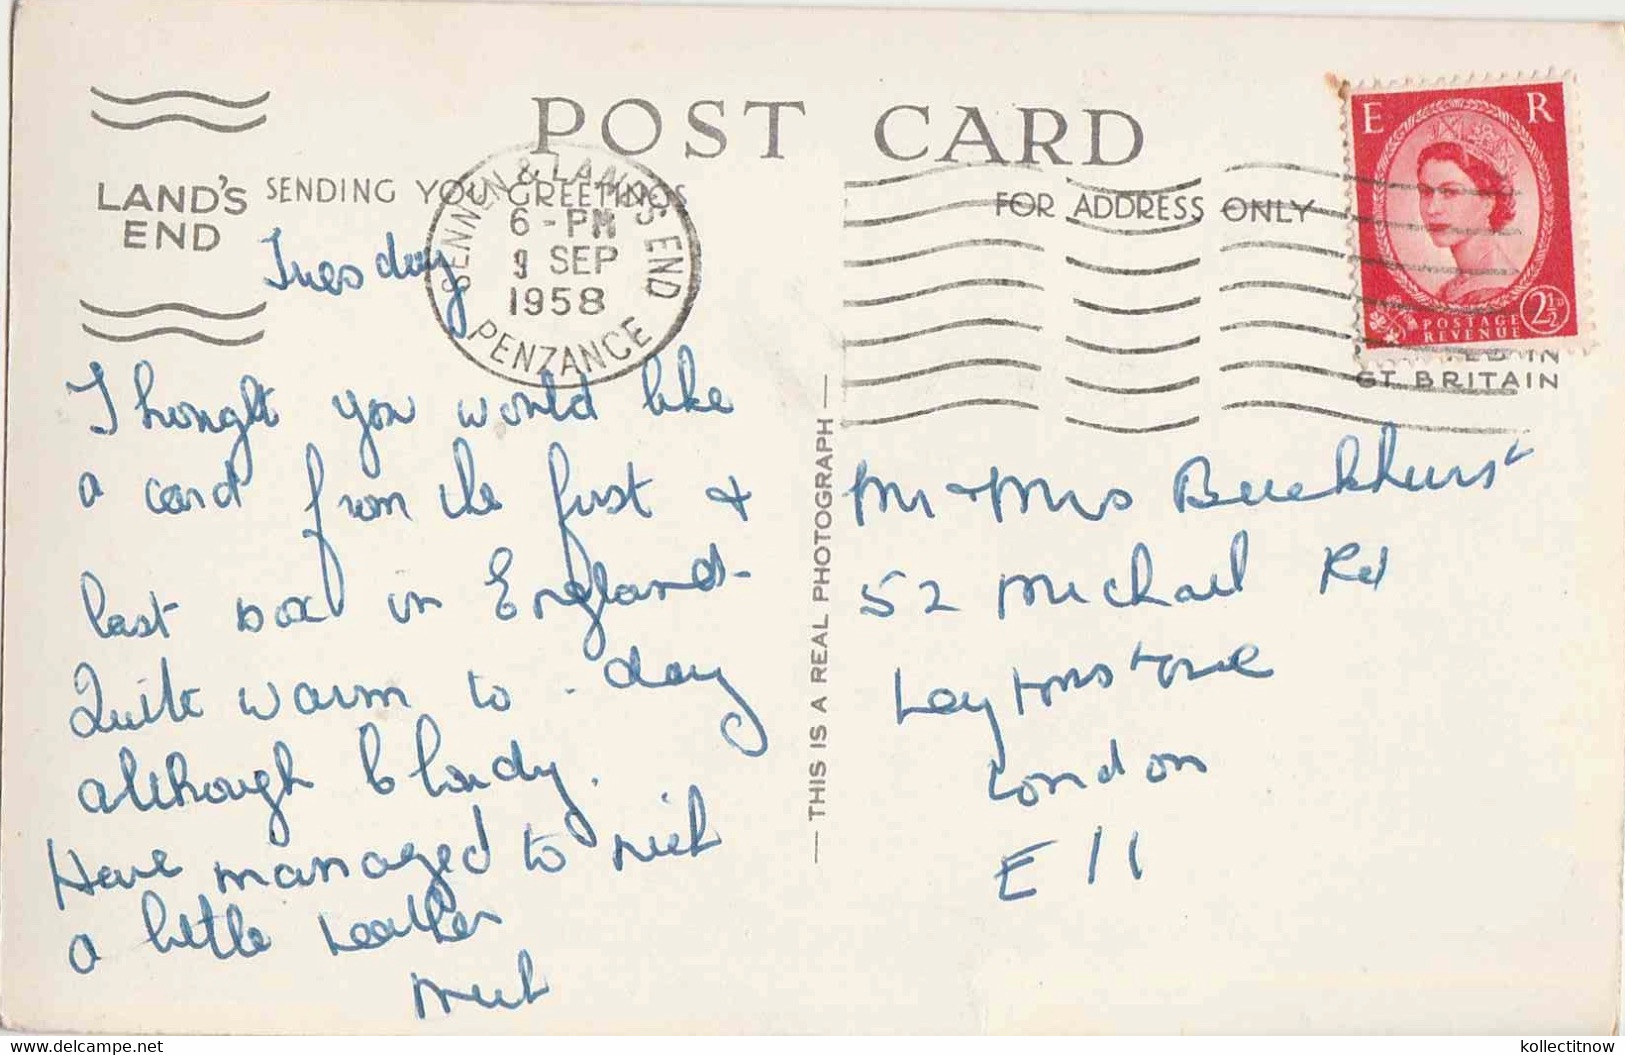 POST CARD
LAND'S
END
SENDING YOU GREETINGS
FOR ADDRESS ONLY
SENNEN & LAND'S END
6 - PM
9 SEP
1958
PENZANCE
E R
POSTAGE
REVENUE
2½D
GT. BRITAIN
Tuesday
Thought you would like
a card from the first &
last in England-
Quite warm to-day
although cloudy.
Have managed to
a little
— THIS IS A REAL PHOTOGRAPH —
Mr & Mrs Buckhurst
52 Michael Rd
Leytonstone
London
E 11
kollectitnow